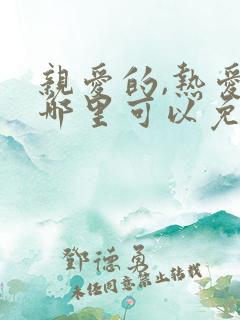 親愛的,熱愛
哪里可以免
鄧德勇
未经同意禁止转载